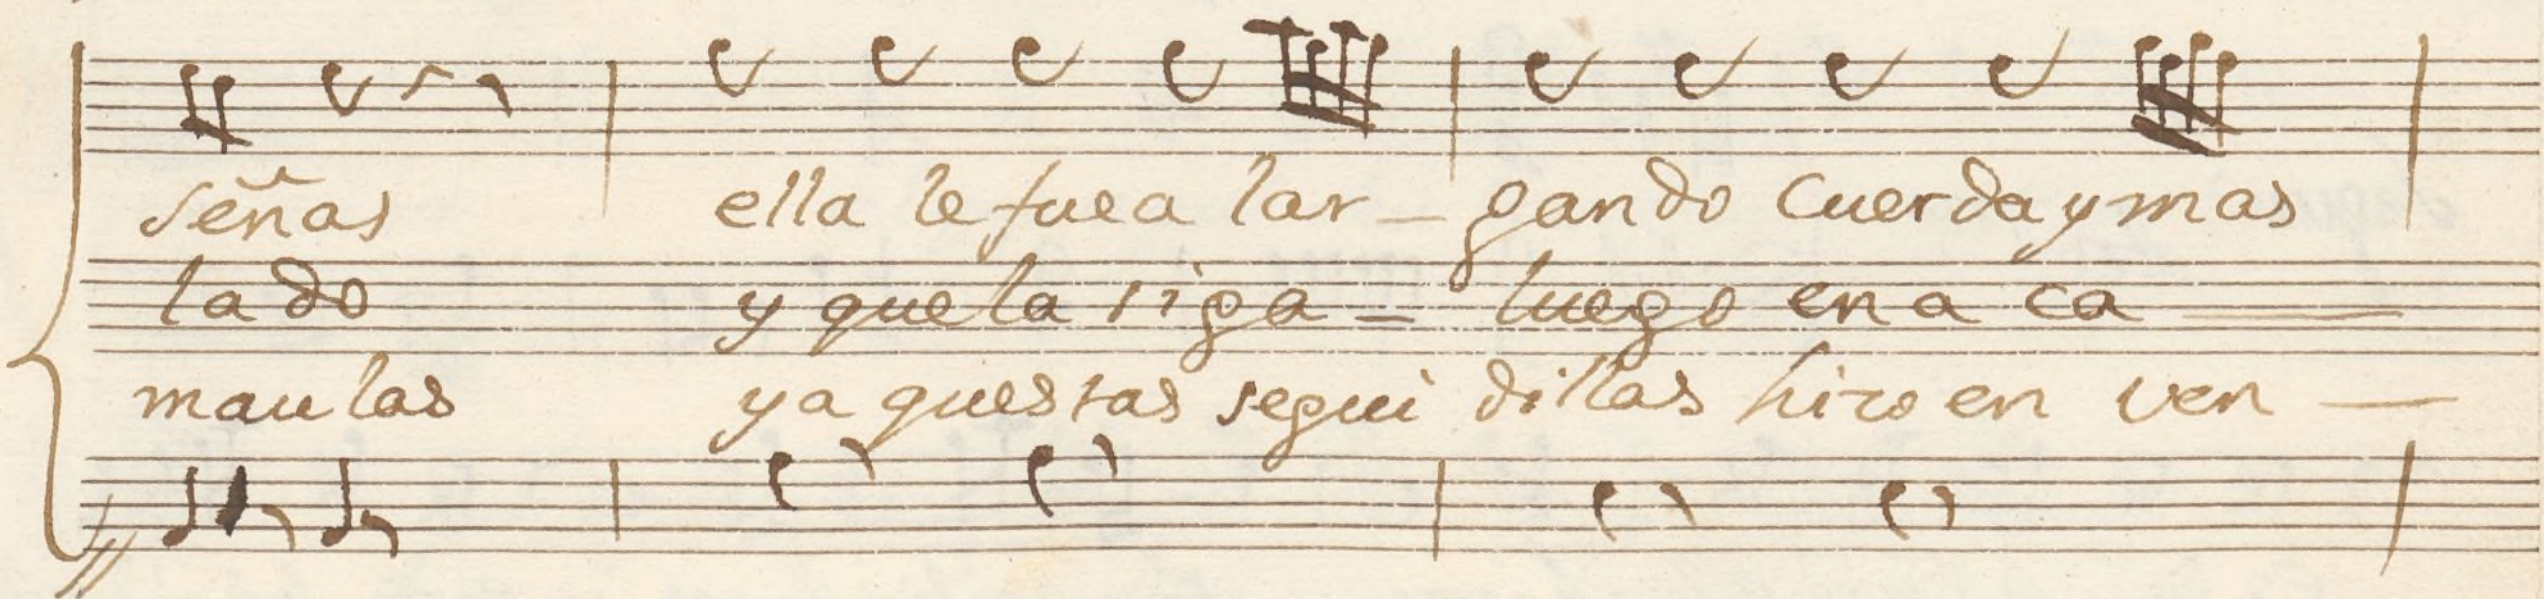 señas ella le fue a lar - gando cuerda y mas
la do y que la siga - luego en a ca -
mau las ya questas segui dillas hizo en ven -